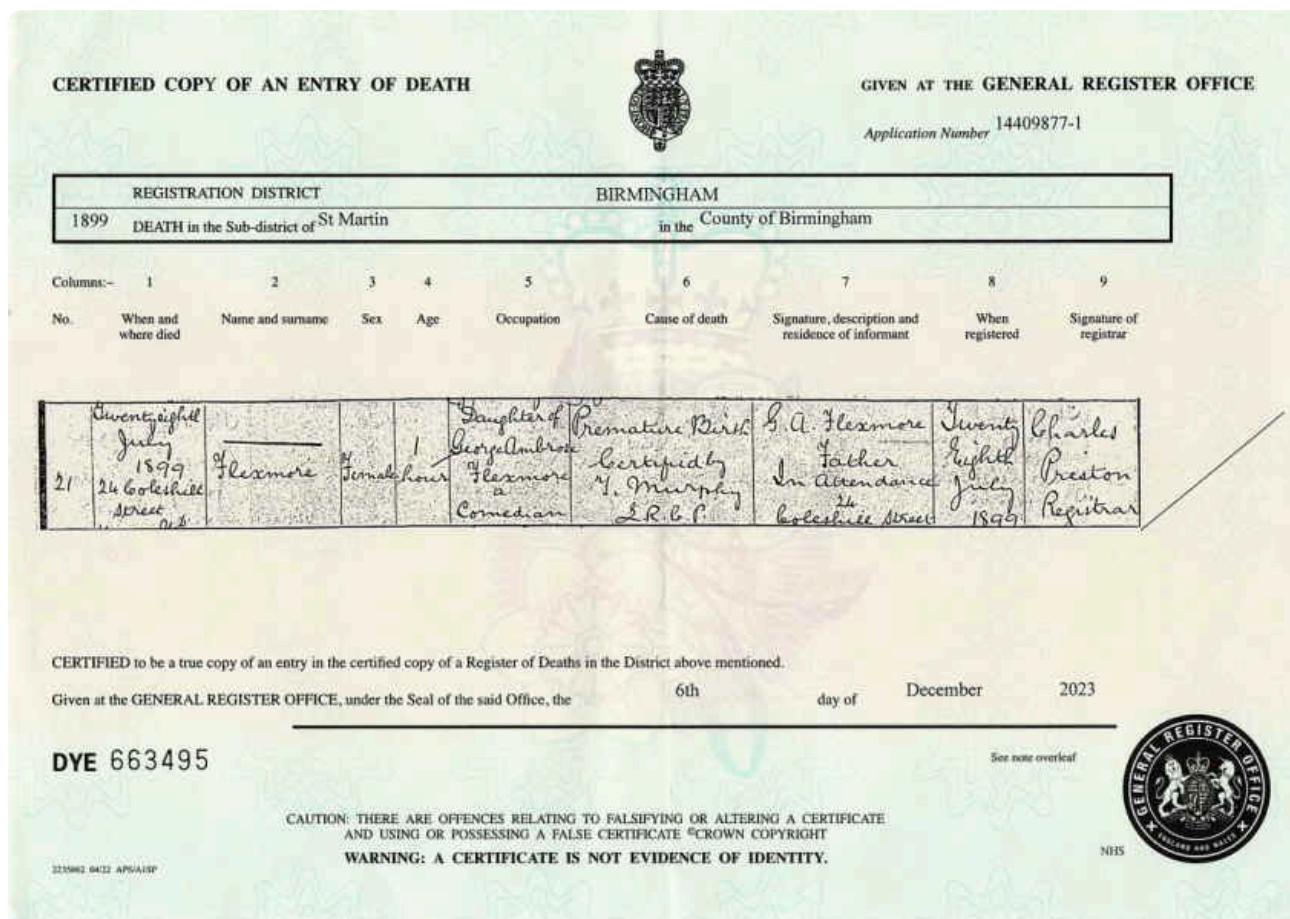 CERTIFIED COPY OF AN ENTRY OF DEATH
GIVEN AT THE GENERAL REGISTER OFFICE
Application Number 14409877-1
REGISTRATION DISTRICT BIRMINGHAM
1899 DEATH in the Sub-district of St Martin in the County of Birmingham
Columns:- 1 2 3 4 5 6 7 8 9
No. When and where died Name and surname Sex Age Occupation Cause of death Signature, description and residence of informant When registered Signature of registrar
21
Twenty eighth
July
1899
24 Coleshill
Street
Flexmore
Female
1
hour
Daughter of
George Ambrose
Flexmore
a
Comedian
Premature Birth
Certified by
T. Murphy
L.R.C.P.
G. A. Flexmore
Father
In attendance
24
Coleshill Street
Twenty
Eighth
July
1899
Charles
Preston
Registrar
CERTIFIED to be a true copy of an entry in the certified copy of a Register of Deaths in the District above mentioned.
Given at the GENERAL REGISTER OFFICE, under the Seal of the said Office, the 6th day of December 2023
DYE 663495
See note overleaf
CAUTION: THERE ARE OFFENCES RELATING TO FALSIFYING OR ALTERING A CERTIFICATE
AND USING OR POSSESSING A FALSE CERTIFICATE ©CROWN COPYRIGHT
WARNING: A CERTIFICATE IS NOT EVIDENCE OF IDENTITY.
GENERAL REGISTER OFFICE
ENGLAND AND WALES
NHS